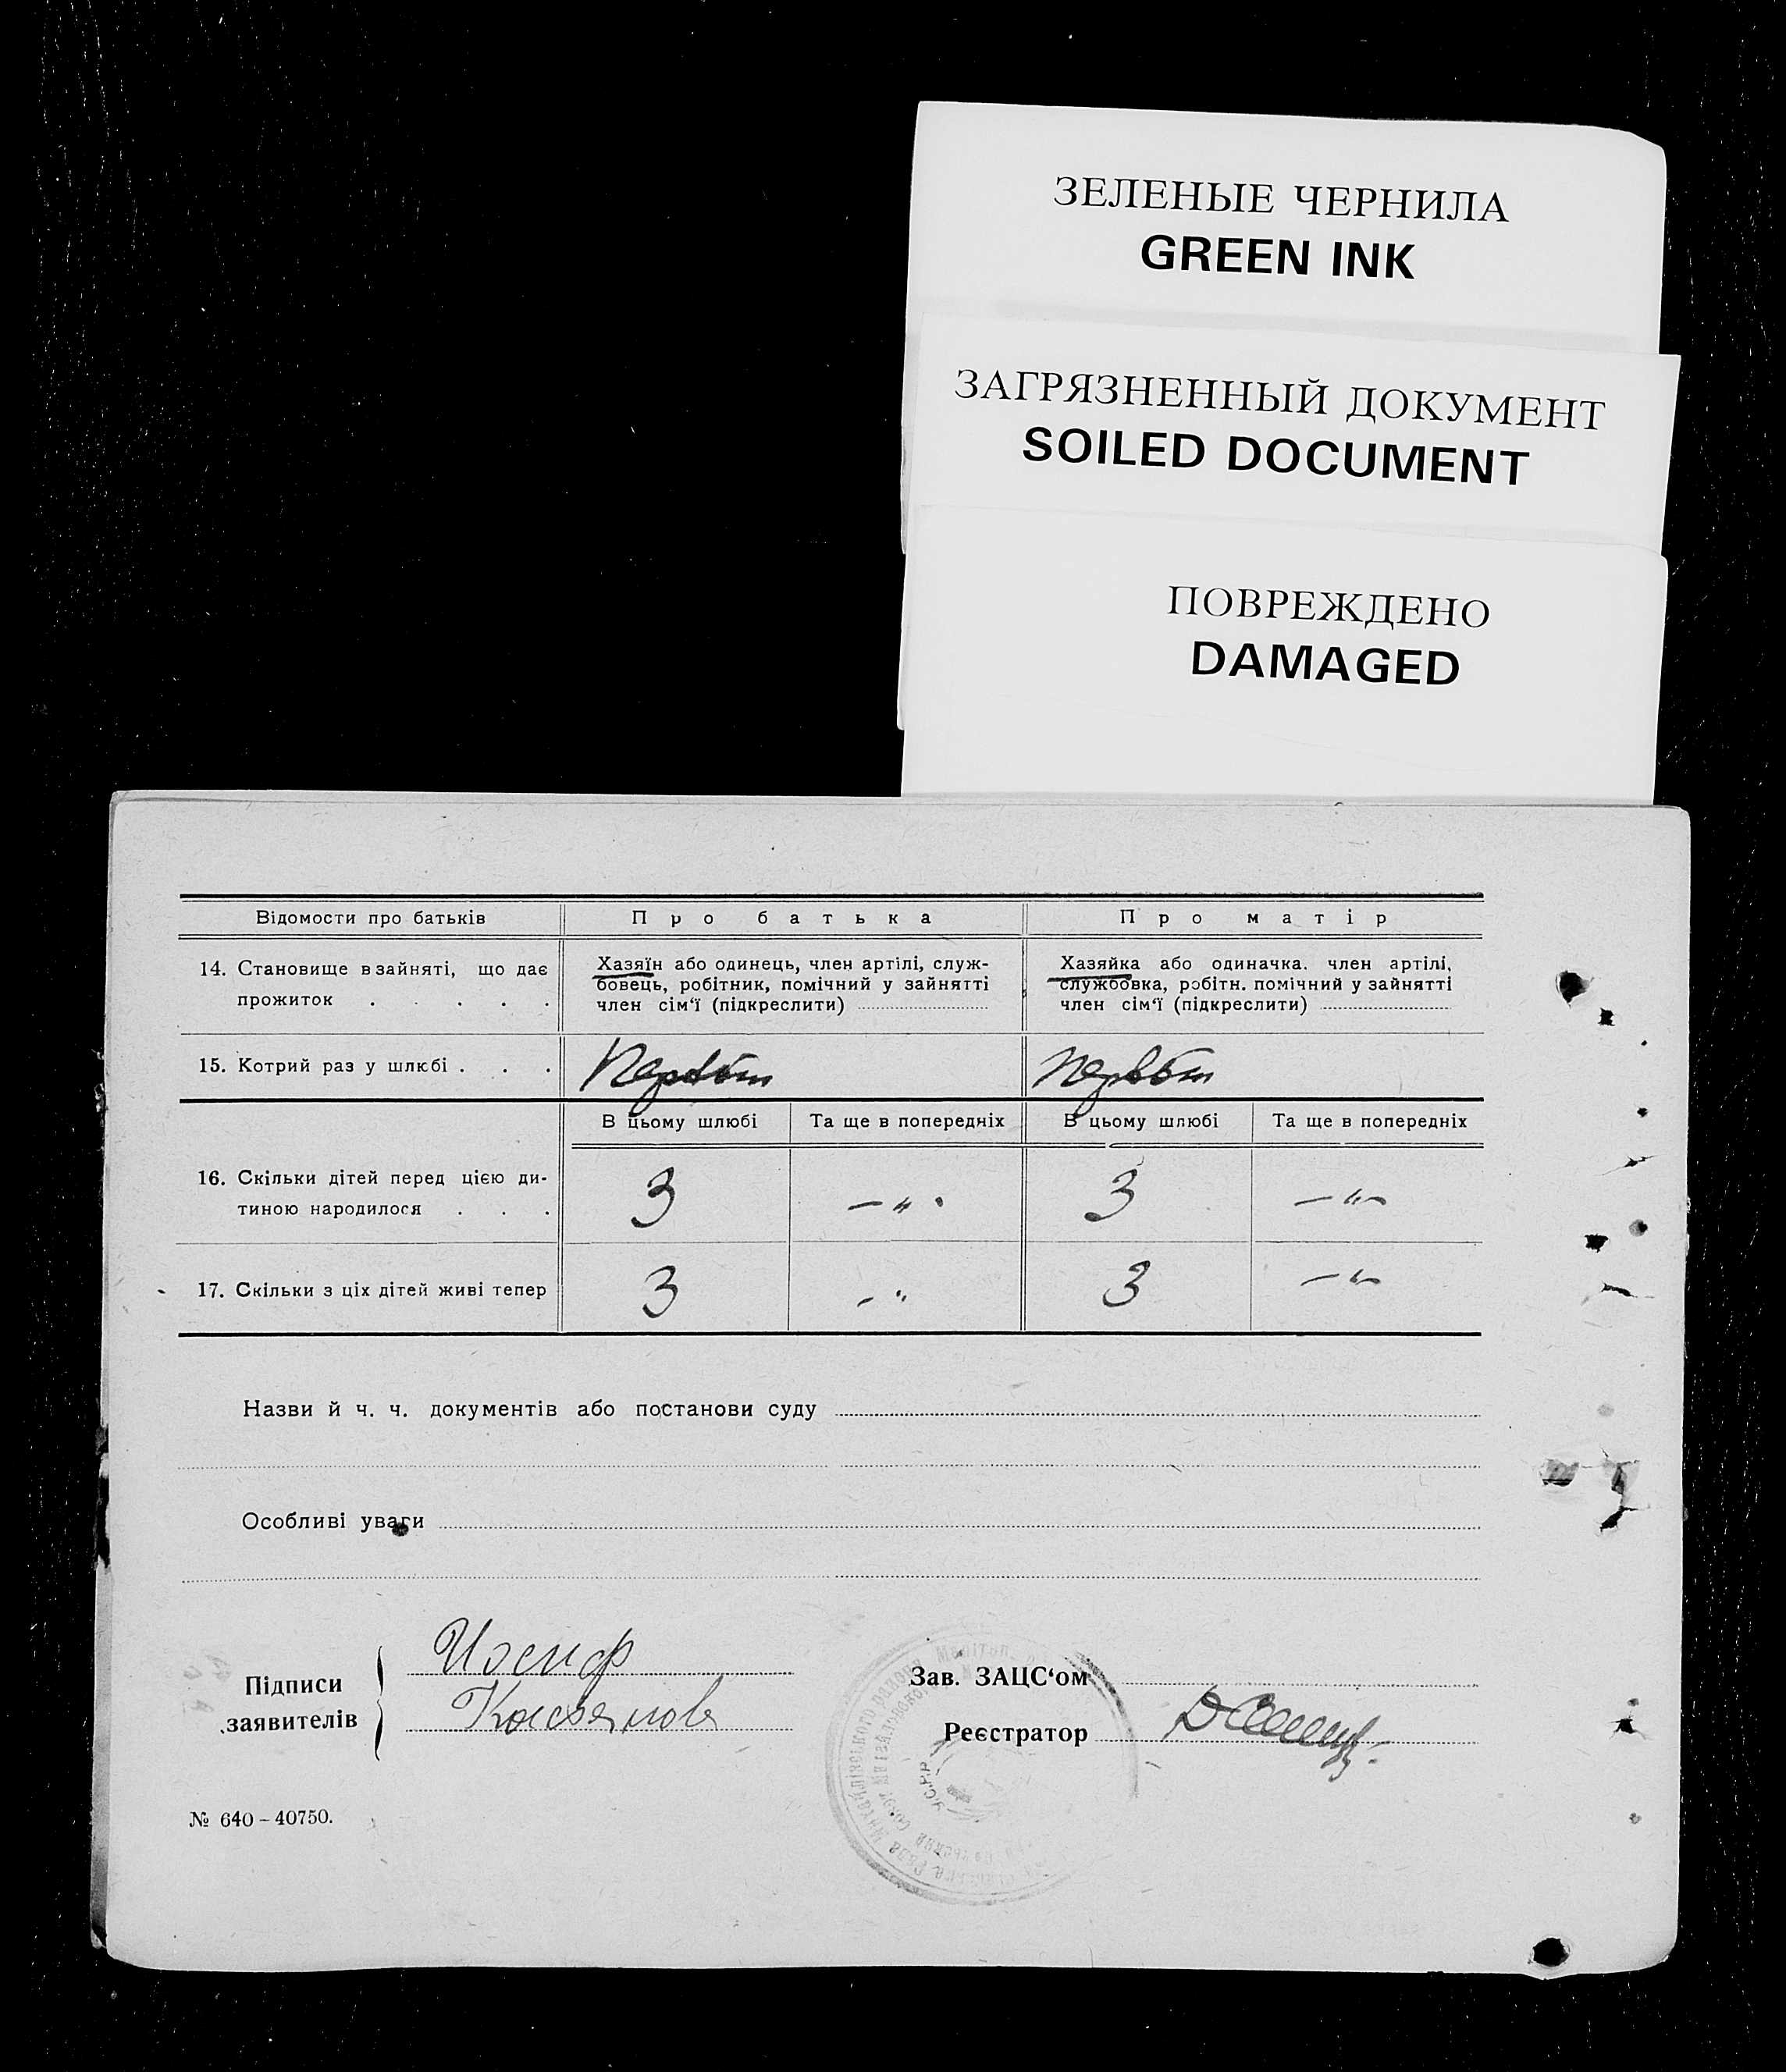 ЗЕЛЕНЫЕ ЧЕРНИЛА
GREEN INK
ЗАГРЯЗНЕННЫЙ ДОКУМЕНТ
SOILED DOCUMENT
ПОВРЕЖДЕНО
DAMAGED
Відомости про батьків
Про батька
Про матір
14. Становище в зайняті, що дає
прожиток . . . . .
Хазяїн або одинець, член артілі, служ-
бовець, робітник, помічний у зайнятті
член сім‘ї (підкреслити)
Хазяйка або одиначка. член артілі,
службовка, робітн. помічний у зайнятті
член сім‘ї (підкреслити)
15. Котрий раз у шлюбі . . .
В цьому шлюбі
Та ще в попередніх
В цьому шлюбі
Та ще в попередніх
16. Скільки дітей перед цією ди-
тиною народилося . . .
3
— „ -
3
— „ —
17. Скільки з ціх дітей живі тепер
3
— „
3
— „ —
Назви й ч. ч. документів або постанови суду
Особливі уваги
Підписи
заявителів
Иосиф
Зав. ЗАЦС‘ом
Реєстратор
У.С.Р.Р.
№ 640 – 40750.